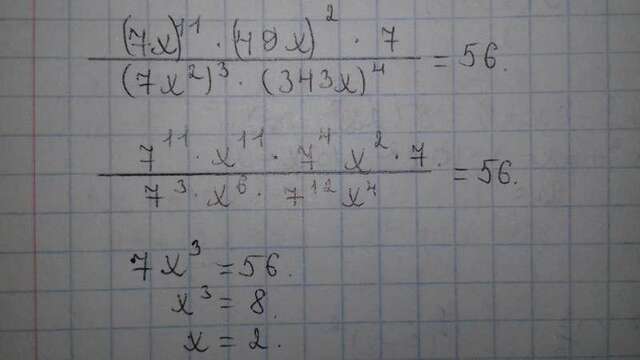 (7x)¹¹ · (49x)² · 7
(7x²)³ · (343x)⁴ = 56.
7¹¹ · x¹¹ · 7⁴ x² · 7.
7³ · x⁶ · 7¹² x⁴ = 56.
7x³ = 56.
x³ = 8.
x = 2.